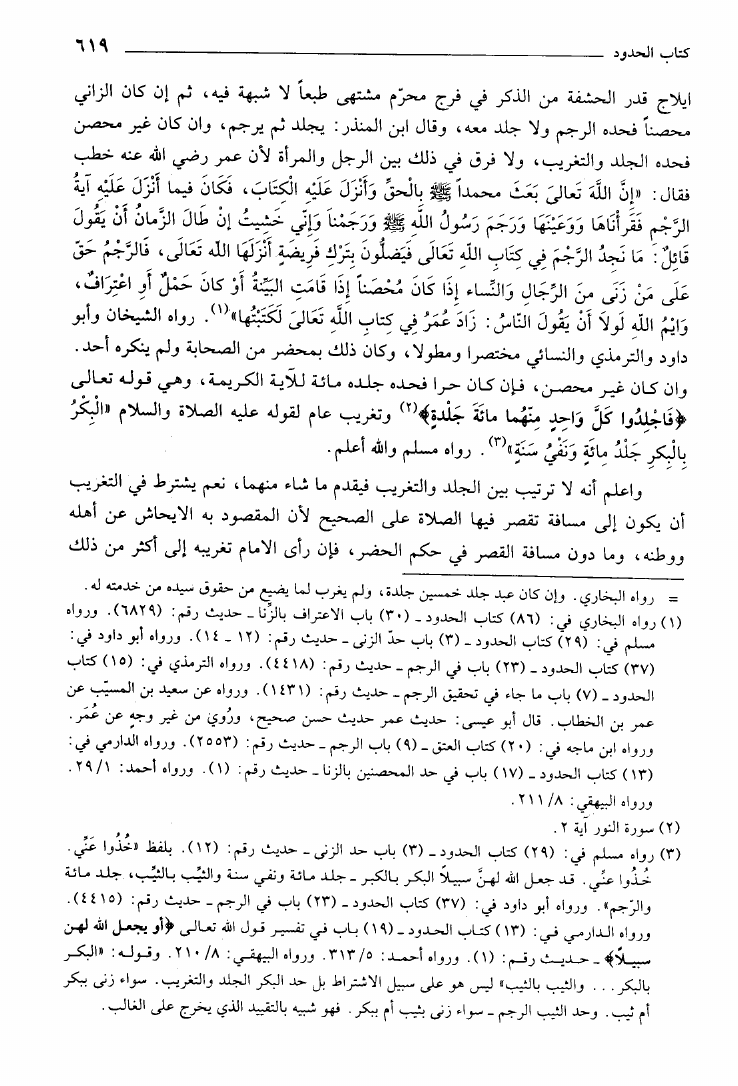 كتاب الحدود ٦١٩
ايلاج قدر الحشفة من الذكر في فرج محرّم مشتهى طبعاً لا شبهة فيه، ثم إن كان الزاني
محصناً فحده الرجم ولا جلد معه، وقال ابن المنذر: يجلد ثم يرجم، وان كان غير محصن
فحده الجلد والتغريب، ولا فرق في ذلك بين الرجل والمرأة لأن عمر رضي الله عنه خطب
فقال: «إِنَّ اللَّهَ تَعَالىَ بَعَثَ محمداً ﷺ بِالْحقِّ وَأَنْزَلَ عَلَيْهِ الْكِتَابَ، فَكَانَ فيما أَنْزَلَ عَلَيْهِ آيَةُ
الرَّجْمِ فَقَرأْنَاهَا وَوَعَيْنَهَا وَرَجَمَ رَسُولُ اللَّهِ ﷺ وَرَجَمْنَا وَإِنِّي خَشِيتُ إنْ طَالَ الزَّمانُ أَنْ يَقُولَ
قَائِلٌ: مَا نَجِدُ الرَّجْمَ فِي كِتَابِ اللَّهِ تَعَالَى فَيَضلُّونَ بِتَرْكِ فَرِيضَةٍ أَنْزَلَهَا اللَّه تَعَالَى، فَالرَّجْمُ حَقّ
عَلَى مَنْ زَنَى منَ الرِّجَالِ وَالنِّساء إِذَا كَانَ مُحْصَناً إِذَا قامَتِ البَيِّنةُ أَوْ كانَ حَمْلٌ أَوِ اعْتِرَافٌ،
وَايْمُ اللَّهِ لَولاَ أَنْ يَقُولَ النَّاسُ: زَادَ عُمَرُ فِي كِتابِ اللَّهِ تَعَالىَ لَكَتَبْتُها»(١). رواه الشيخان وأبو
داود والترمذي والنسائي مختصرا ومطولا، وكان ذلك بمحضر من الصحابة ولم ينكره أحد.
وان كان غير محصن، فإن كان حرا فحده جلده مائة للآية الكريمة، وهي قوله تعالى
﴿فَاجْلِدُوا كلَّ وَاحِدٍ مِنْهُما مائَةَ جَلْدةٍ﴾(٢) وتغريب عام لقوله عليه الصلاة والسلام «الْبِكْرُ
بِالْبِكرِ جَلْدُ مِائَةٍ وَنَفْيُ سَنَةٍ»(٣). رواه مسلم والله أعلم.
واعلم أنه لا ترتيب بين الجلد والتغريب فيقدم ما شاء منهما، نعم يشترط في التغريب
أن يكون إلى مسافة تقصر فيها الصلاة على الصحيح لأن المقصود به الايحاش عن أهله
ووطنه، وما دون مسافة القصر في حكم الحضر، فإن رأى الامام تغريبه إلى أكثر من ذلك
= رواه البخاري. وإن كان عبد جلد خمسين جلدة، ولم يغرب لما يضيع من حقوق سيده من خدمته له.
(١) رواه البخاري في: (٨٦) كتاب الحدود ـ (٣٠) باب الاعتراف بالزِّنا ـ حديث رقم: (٦٨٢٩). ورواه
مسلم في: (٢٩) كتاب الحدود ـ (٣) باب حدّ الزنى ـ حديث رقم: (١٢ ـ ١٤). ورواه أبو داود في:
(٣٧) كتاب الحدود ـ (٢٣) باب في الرجم ـ حديث رقم: (٤٤١٨). ورواه الترمذي في: (١٥) كتاب
الحدود ـ (٧) باب ما جاء في تحقيق الرجم ـ حديث رقم: (١٤٣١). ورواه عن سعيد بن المسيّب عن
عمر بن الخطاب. قال أبو عيسى: حديث عمر حديث حسن صحيح، ورُويَ من غير وجهٍ عن عُمَر.
ورواه ابن ماجه في: (٢٠) كتاب العتق ـ (٩) باب الرجم ـ حديث رقم: (٢٥٥٣). ورواه الدارمي في:
(١٣) كتاب الحدود ـ (١٧) باب في حد المحصنين بالزنا ـ حديث رقم: (١). ورواه أحمد: ٢٩/١.
ورواه البيهقي: ٢١١/٨.
(٢) سورة النور آية ٢.
(٣) رواه مسلم في: (٢٩) كتاب الحدود ـ (٣) باب حد الزنى ـ حديث رقم: (١٢). بلفظ «خُذُوا عَنِّي.
خُذُوا عنِّي. قد جعل الله لهنَّ سبيلاً البكر بالكبر ـ جلد مائة ونفي سنة والثيّب بالثيِّب، جلد مائة
والرّجم». ورواه أبو داود في: (٣٧) كتاب الحدود ـ (٢٣) باب في الرجم ـ حديث رقم: (٤٤١٥).
ورواه الدارمي في: (١٣) كتاب الحدود ـ (١٩) باب في تفسير قول الله تعالى ﴿أو يجعل الله لهن
سبيلاً﴾ ـ حديث رقم: (١). ورواه أحمد: ٣١٣/٥. ورواه البيهقي: ٢١٠/٨. وقوله: «البكر
بالبكر... والثيب بالثيب» ليس هو على سبيل الاشتراط بل حد البكر الجلد والتغريب. سواء زنى ببكر
أم ثيب. وحد الثيب الرجم ـ سواء زنى بثيب أم ببكر. فهو شبيه بالتقييد الذي يخرج على الغالب.